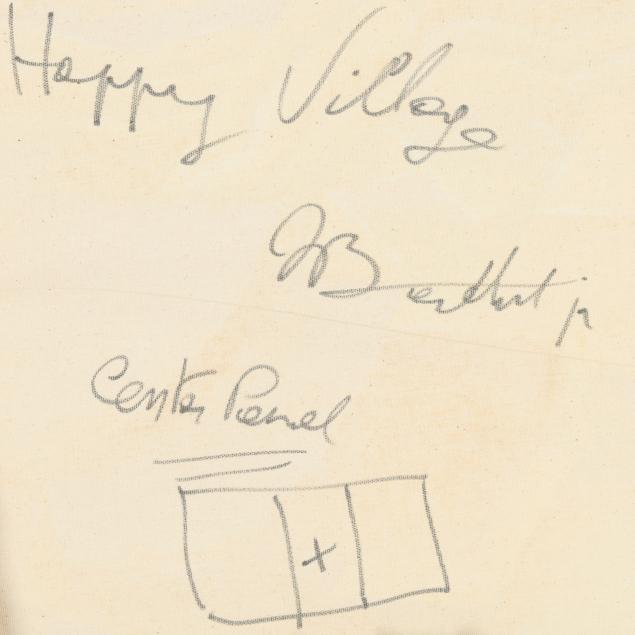 Happy Village
jr
Center Panel
+